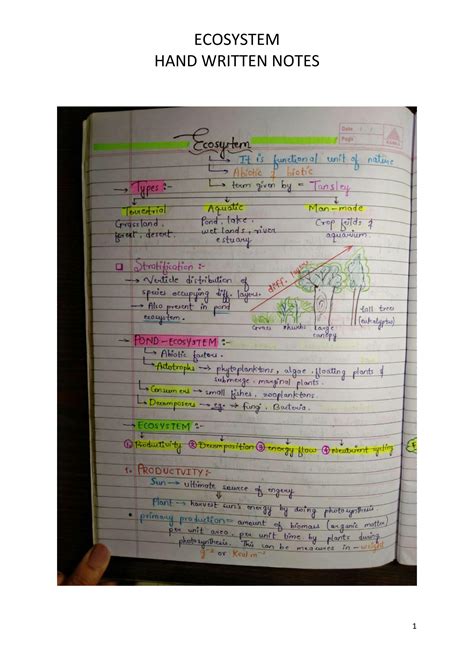 ECOSYSTEM
HAND WRITTEN NOTES
Date
Page
Ecosystem
↳ It is functional unit of nature
↳ Abiotic & biotic
↳ term given by = Tansley
→ Types :-
Terrestrial Aquatic Man-made
Grassland, Pond, lake, Crop feilds &
forest, desert. wet lands, river aquarium.
estuary
Stratification :-
→ Verticle distribution of
species occupying diff. layers.
→ Also present in pond
ecosystem.
diff. layers
Grass shrubs large
canopy
tall trees
(eukalyptus)
→ POND - ECOSYSTEM :-
→ Abiotic factors.
→ Autotrophs → phytoplanktons, algae, floating plants &
submerge-marginal plants.
→ Consumers → small fishes, zooplanktons.
→ Decomposers → eg → fungi, Bacteria.
→ ECOSYSTEM :-
① Productivity ② Decomposition ③ energy flow ④ Neutrient cycling
1. PRODUCTVITY :-
Sun → ultimate source of engery
Plant → harvest sun's energy by doing photosynthesis
• primary production = amount of biomass (organic matter)
per unit area, per unit time by plants during
photosynthesis. This can be measures in → weight
g⁻² or Kcal m⁻²
1